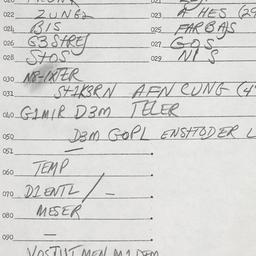 022 ZUNGZ 023 A HES (29
024 BIS 025 FARBAJS
026 G3STREJ 027 GOS
028 STOS 029 NIS
030 N8-IXTER
031 ST1KGRN AFN CUNG (4
040 G1MIR D3M TELER
050 D3M GOPL ENSHTODER L
051
060 TEMP
070 D1ENTL / —
080 MESER
090 —